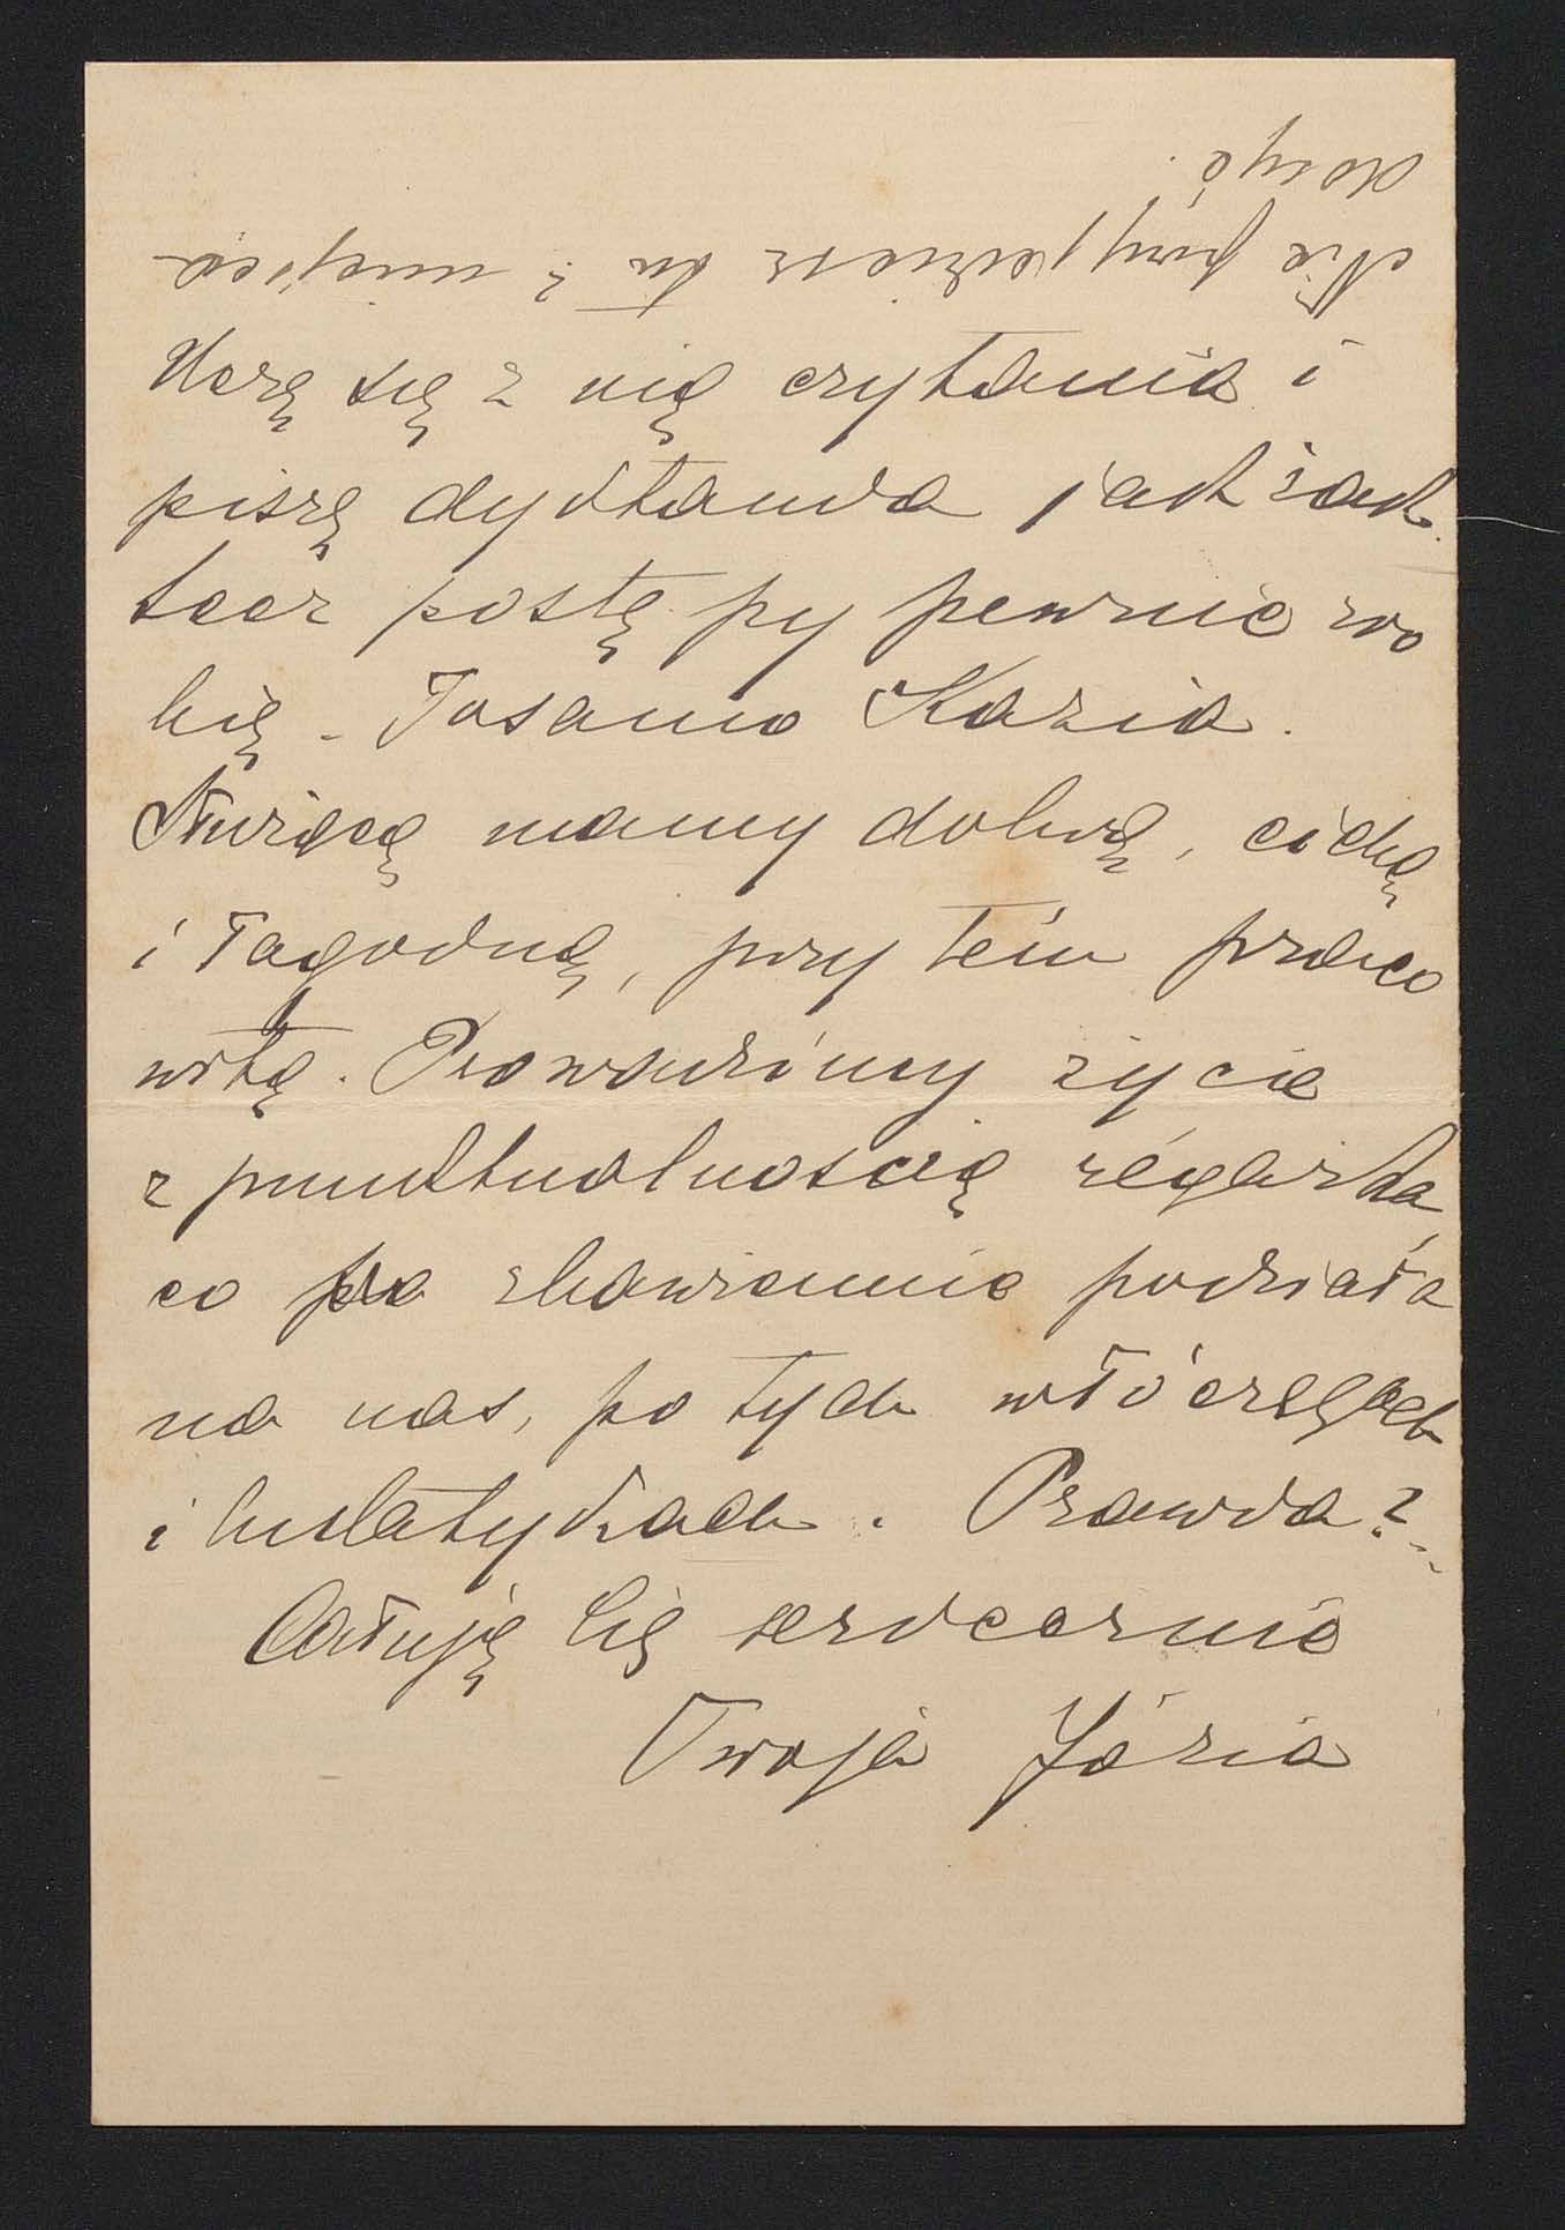 Uczę się z nią czytania i
piszę dyktanda jak żak
lecz postępy pewnie zro
bię - Tosamo Kazia.
mamy dobrą, cichą
i łagodną, przy tém praco
witą. Prowadzimy życie
z punktualnością zégarka
co zbawiennie podziała
na nas, po tych włóczęgach
i hulatykach. Prawda?..
Całuję Cię serdecznie
Twoja Józia
Nie przyjedziesz tu? miejsca
dosyć.